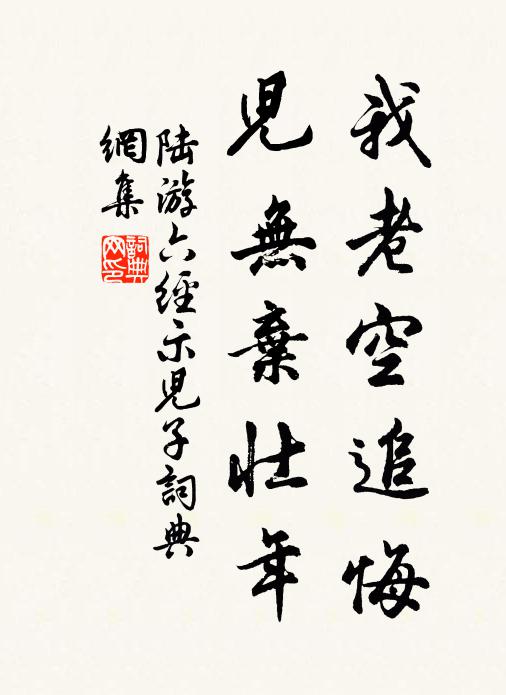 我老空追悔
兒無棄壯年
陆游六經示兒子詞典
網集
詞典
网印